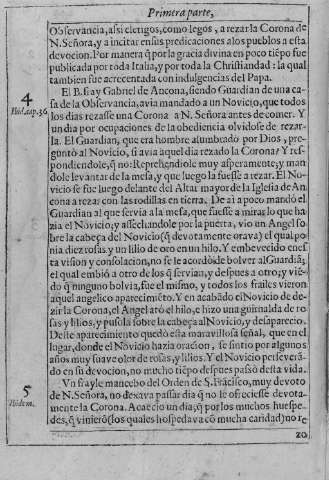 Primera parte,
Observancia, assi clerigos, como legos, a rezar la Corona de
N. Señora, y a incitar en sus predicaciones a los pueblos a esta
devocion. Por manera q̃ por la gracia divina en poco tiẽpo fue
publicada por toda Italia, y por toda la Christiandad: la qual
tambien fue acrecentada con indulgencias del Papa.
4
Ibid. cap. 36.
El B. fray Gabriel de Ancona, siendo Guardian de una ca-
sa de la Observancia, avia mandado a un Novicio, que todos
los dias rezasse una Corona a N. Señora antes de comer. Y
un dia por ocupaciones de la obediencia olvidose de rezar-
la. El Guardian, que era hombre alumbrado por Dios, pre-
guntò al Novicio, si avia aquel dia rezado la Corona? Y res-
pondiendole, q̃ no: Reprehendiole muy asperamente, y man-
dole levantar de la mesa, y que luego la fuesse a rezar. El No-
vicio se fue luego delante del Altar mayor de la Iglesia de An-
cona a rezar con las rodillas en tierra. De ai a poco mandò el
Guardian al que servia a la mesa, que fuesse a mirar lo que ha-
zia el Novicio, y assechandole por la puerta, vio un Angel so-
bre la cabeça del Novicio (q̃ devotamente orava) el qual po-
nia diez rosas, y un lilio de oro en un hilo. Y embevecido en es-
ta vision y consolacion, no se le acordò de bolver al Guardiã;
el qual embiò a otro de los q̃ servian, y despues a otro; y viẽ-
do q̃ ninguno bolvia, fue el mismo, y todos los frailes vieron
aquel angelico aparecimiẽto. Y en acabãdo el Novicio de de-
zir la Corona, el Angel atò el hilo, e hizo una guirnalda de ro-
sas y lilios, y pusola sobre la cabeça al Novicio, y desaparecio.
Deste aparecimiento quedò esta maravillosa señal, que en el
lugar, donde el Novicio hazia oracion, se sintio por algunos
años muy suave olor de rosas, y lilios. Y el Novicio perseverã-
do en su devocion, no mucho tiẽpo despues passò desta vida.
5
Ibidem.
Un frayle mancebo del Orden de S. Frãcisco, muy devoto
de N. Señora, no dexava passar dia q̃ no le ofreciesse devota-
mente la Corona. Acaecio un dia, q̃ por los muchos huespe-
des, q̃ vinierõ (los quales hospedava cõ mucha caridad) no re
zo